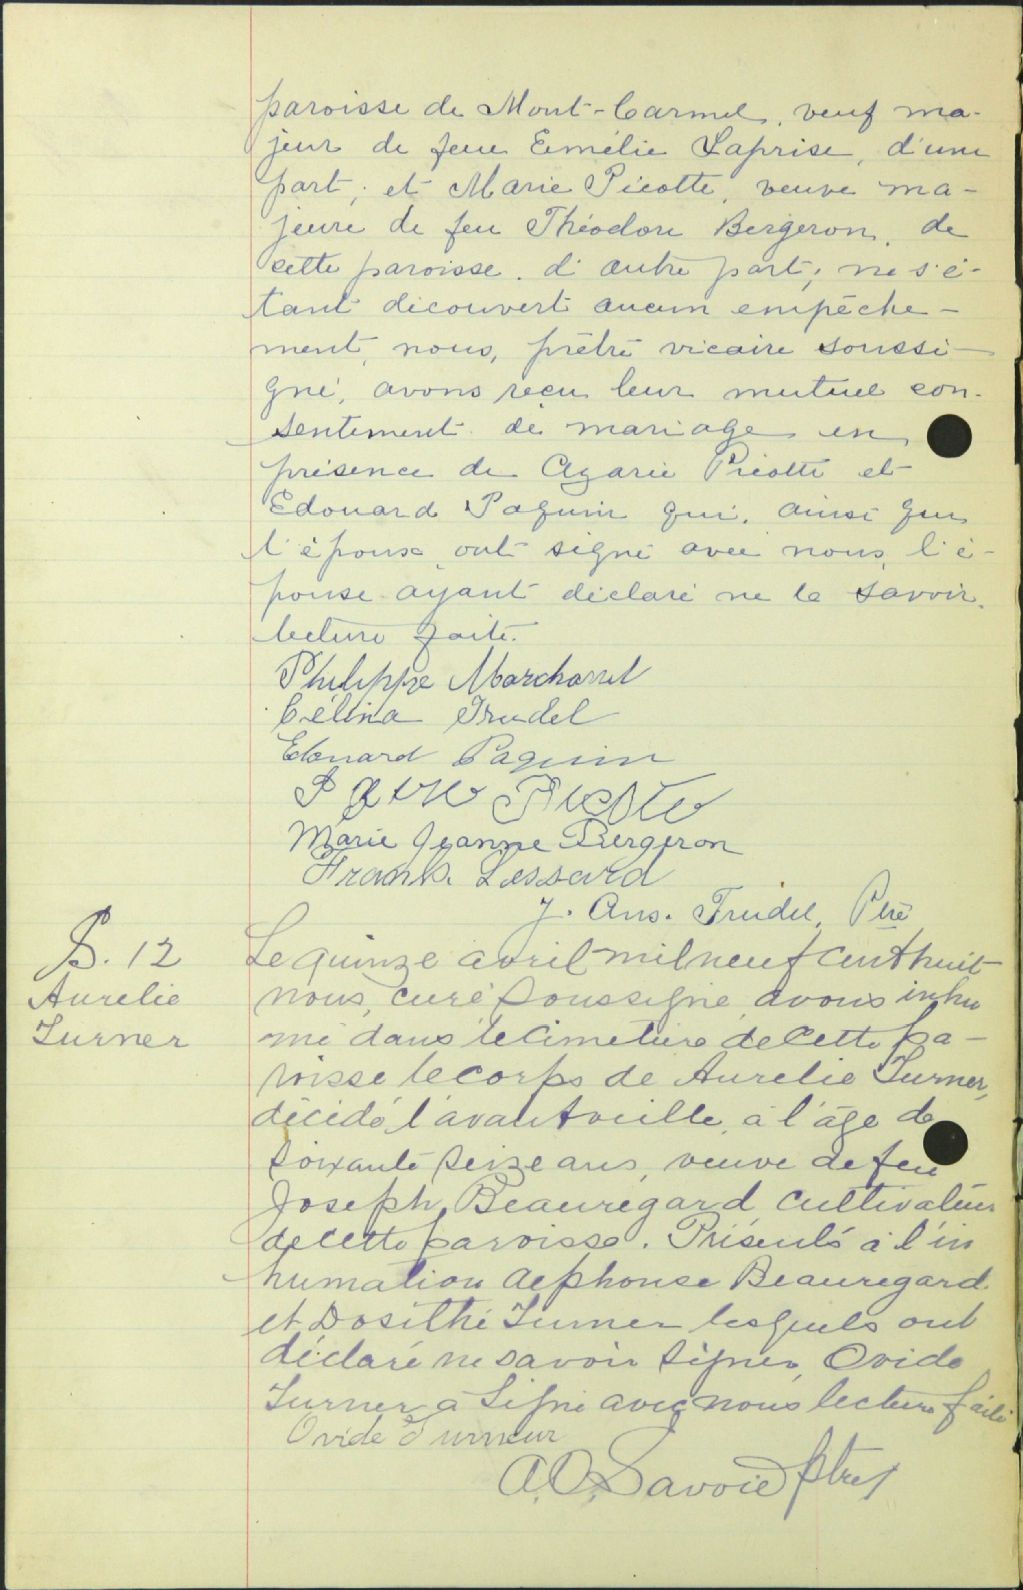 paroisse de Mont-Carmel, veuf ma-
jeur de feue Emélie Laprise, d'une
part; et Marie Picotte, veuve ma-
jeure de feu Théodore Bergeron, de
cette paroisse, d'autre part; ne s'é-
tant découvert aucun empêche-
ment, nous, prêtre vicaire soussi-
gné, avons reçu leur mutuel con-
sentement de mariage en
présence de Azarie Picotte et
Edouard Paquin qui, ainsi que
l'époux, ont signé avec nous, l'é-
pouse ayant déclaré ne le savoir.
lecture faite.
Philippe Marchand
Célina Trudel
Edouard Paquin
Picotte
Marie Jeanne Bergeron
Frank Lessard
J. Ans. Trudel, Ptre
S. 12
Aurelie
Turner
Le quinze avril mil neuf cent huit
nous, curé soussigné avons inhu
mé dans le cimetière de cette pa-
roisse le corps de Aurelie Turner,
décédé l'avant veille, à l'âge de
soixante seize ans, veuve de feu
Joseph Beauregard cultivateur
de cette paroisse. Présents à l'in
humation Alphonse Beauregard
et Dosithé Turner lesquels ont
déclaré ne savoir signer, Ovide
Turner a signé avec nous lecture faite
Ovide Turneur
A. O. Savoie ptre